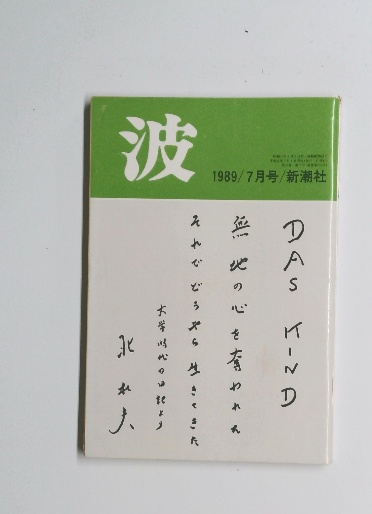 波
1989/7月号/新潮社
DAS KIND
無地の心を奪われた
それでどうやら生きてきた
大学時代の日記より
北杜夫